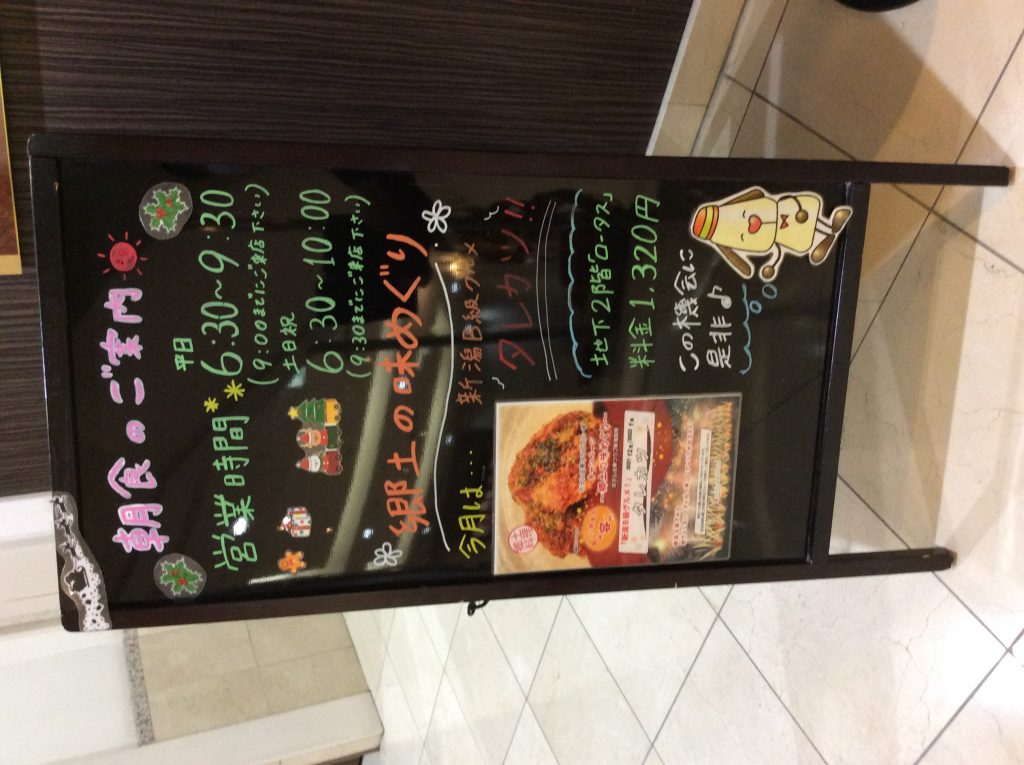 朝食のご案内
営業時間
平日
6:30~9:30
(9:00までにご来店下さい)
土日祝
6:30~10:00
(9:30までにご来店下さい)
郷土の味めぐり
今月は…
新潟B級グルメ
タレカツ!!
地下2階「ロータス」
料金1,320円
この機会に
是非♪
新潟B級グルメ!